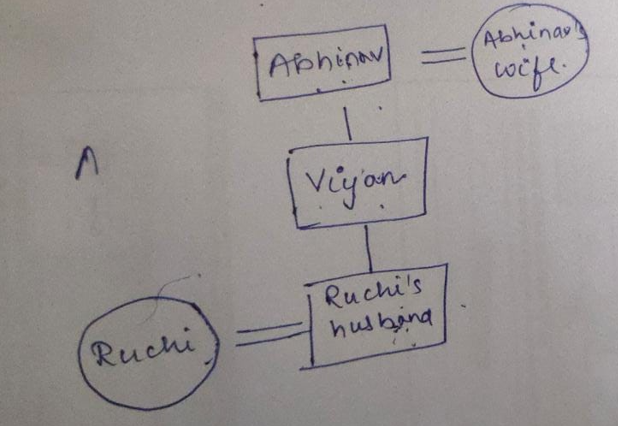 Abhinav
Abhinav's
wife.
Viyan
Ruchi's
husband
Ruchi